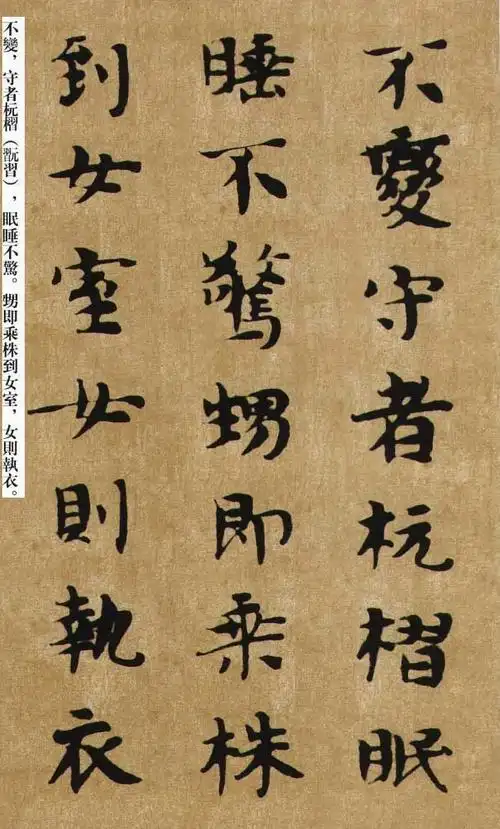 不變守者杬槢眠
睡不驚甥即乘株
到女室女則執衣
不變，守者杬槢（翫習），眠睡不驚。甥即乘株到女室，女則執衣。